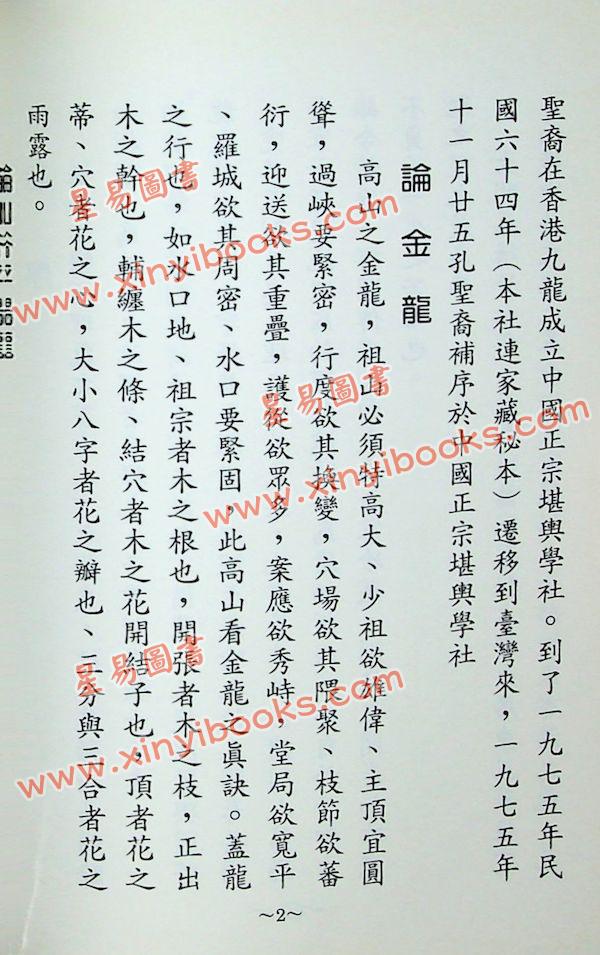 聖裔在香港九龍成立中國正宗堪輿學社。到了一九七五年民
國六十四年（本社連家藏秘本）遷移到臺灣來，一九七五年
十一月廿五孔聖裔補序於中國正宗堪輿學社
論金龍
高山之金龍，祖山必須特高大、少祖欲雄偉、主頂宜圓
聳，過峽要緊密，行度欲其換變，穴場欲其隈聚、枝節欲蕃
衍，迎送欲其重疊，護從欲眾多，案應欲秀峙，堂局欲寬平
、羅城欲其周密、水口要緊固，此高山看金龍之眞訣。蓋龍
之行也，如水口地、祖宗者木之根也，開張者木之枝，正出
木之幹也，輔纏木之條、結穴者木之花開結子也，頂者花之
蒂、穴者花之心，大小八字者花之瓣也、三分與三合者花之
雨露也。
~2~
星易圖書
www.xinyibooks.com
星易圖書
www.xinyibooks.com
星易圖書
www.xinyibooks.com
星易圖書
www.xinyibooks.com